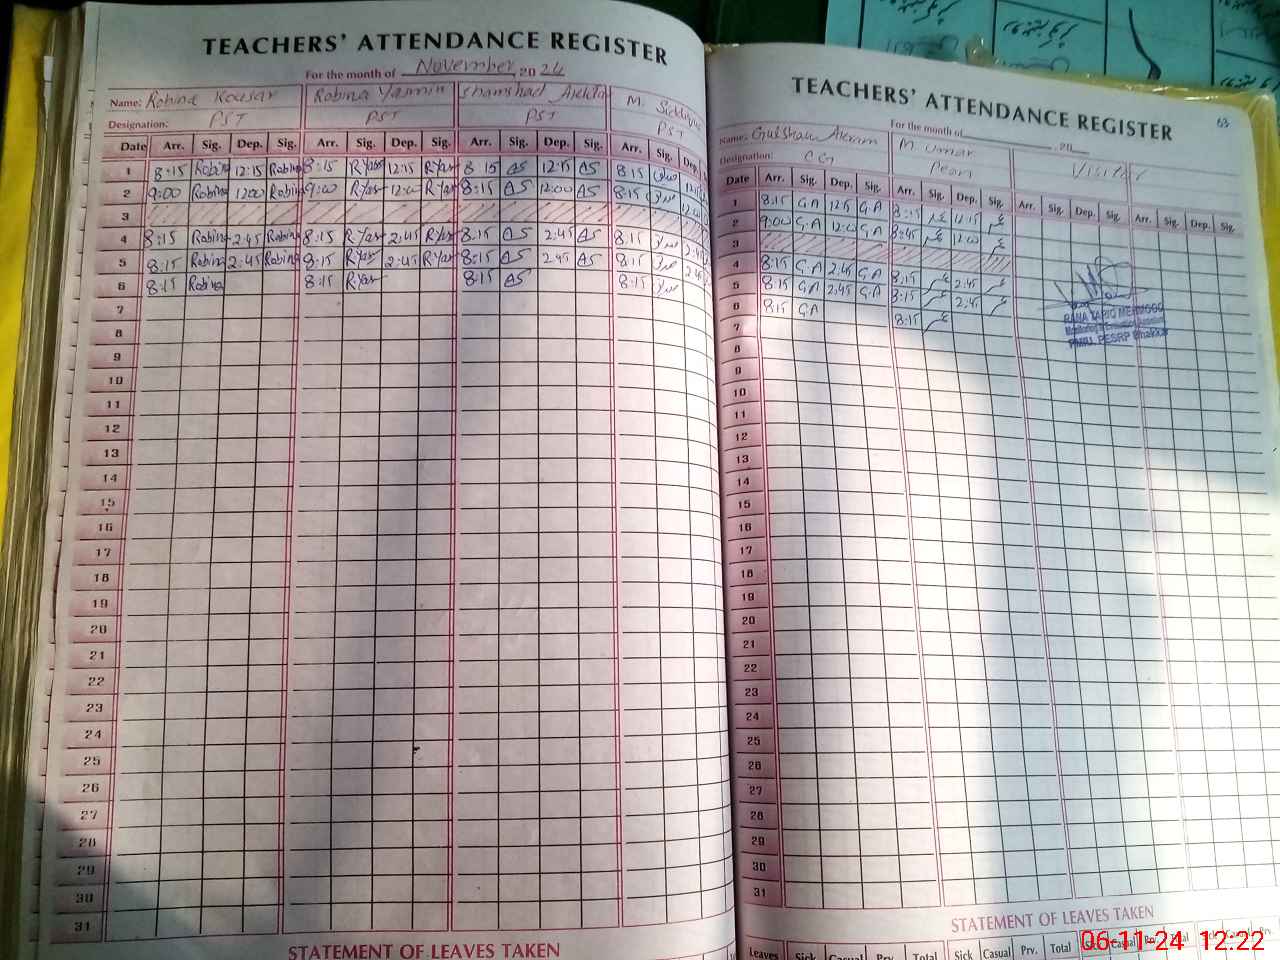 TEACHERS' ATTENDANCE REGISTER
For the month of November 2024
Name: Robina Kousar Robina Yasmin Shamshad Akhtar M. Siddique
Designation: PST PST PST PST
Date Arr. Sig. Dep. Sig. Arr. Sig. Dep. Sig. Arr. Sig. Dep. Sig. Arr. Sig. Dep.
1 8:15 Robina 12:15 Robina 8:15 R.Yas 12:15 R.Yas 8:15 AS 12:15 AS 8:15
2 9:00 Robina 12:00 Robina 9:00 R.Yas 12:00 R.Yas 8:15 AS 12:00 AS 8:15
3
4 8:15 Robina 2:45 Robina 8:15 R.Yas 2:45 R.Yas 8:15 AS 2:45 AS 8:15
5 8:15 Robina 2:45 Robina 8:15 R.Yas 2:45 R.Yas 8:15 AS 2:45 AS 8:15
6 8:15 Robina 8:15 R.Yas 8:15 AS 8:15
7
8
9
10
11
12
13
14
15
16
17
18
19
20
21
22
23
24
25
26
27
28
29
30
31
STATEMENT OF LEAVES TAKEN
63
TEACHERS' ATTENDANCE REGISTER
For the month of 20
Name: Gulshan Akram M Umar Visitor
Designation:
Date Arr. Sig. Dep. Sig. Arr. Sig. Dep. Sig. Arr. Sig. Dep. Sig. Arr. Sig. Dep. Sig.
1 8:15 G.A 12:15 G.A 8:15 12:15
2 9:00 G.A 12:00 G.A 8:45 12:00
3
4 8:15 G.A 2:45 G.A 8:15 2:45
5 8:15 G.A 2:45 G.A 8:15 2:45
6 8:15 G.A 8:15
7
8
9
10
11
12
13
14
15
16
17
18
19
20
21
22
23
24
25
26
27
28
29
30
31
RANA TARIQ MEHMOOD
PMIU, PESRP Bhakkar
STATEMENT OF LEAVES TAKEN
Leaves Sick Casual Prv. Total Sick Casual Prv. Total Sick Casual Prv. Total Sick Casual Prv.
06-11-24 12:22